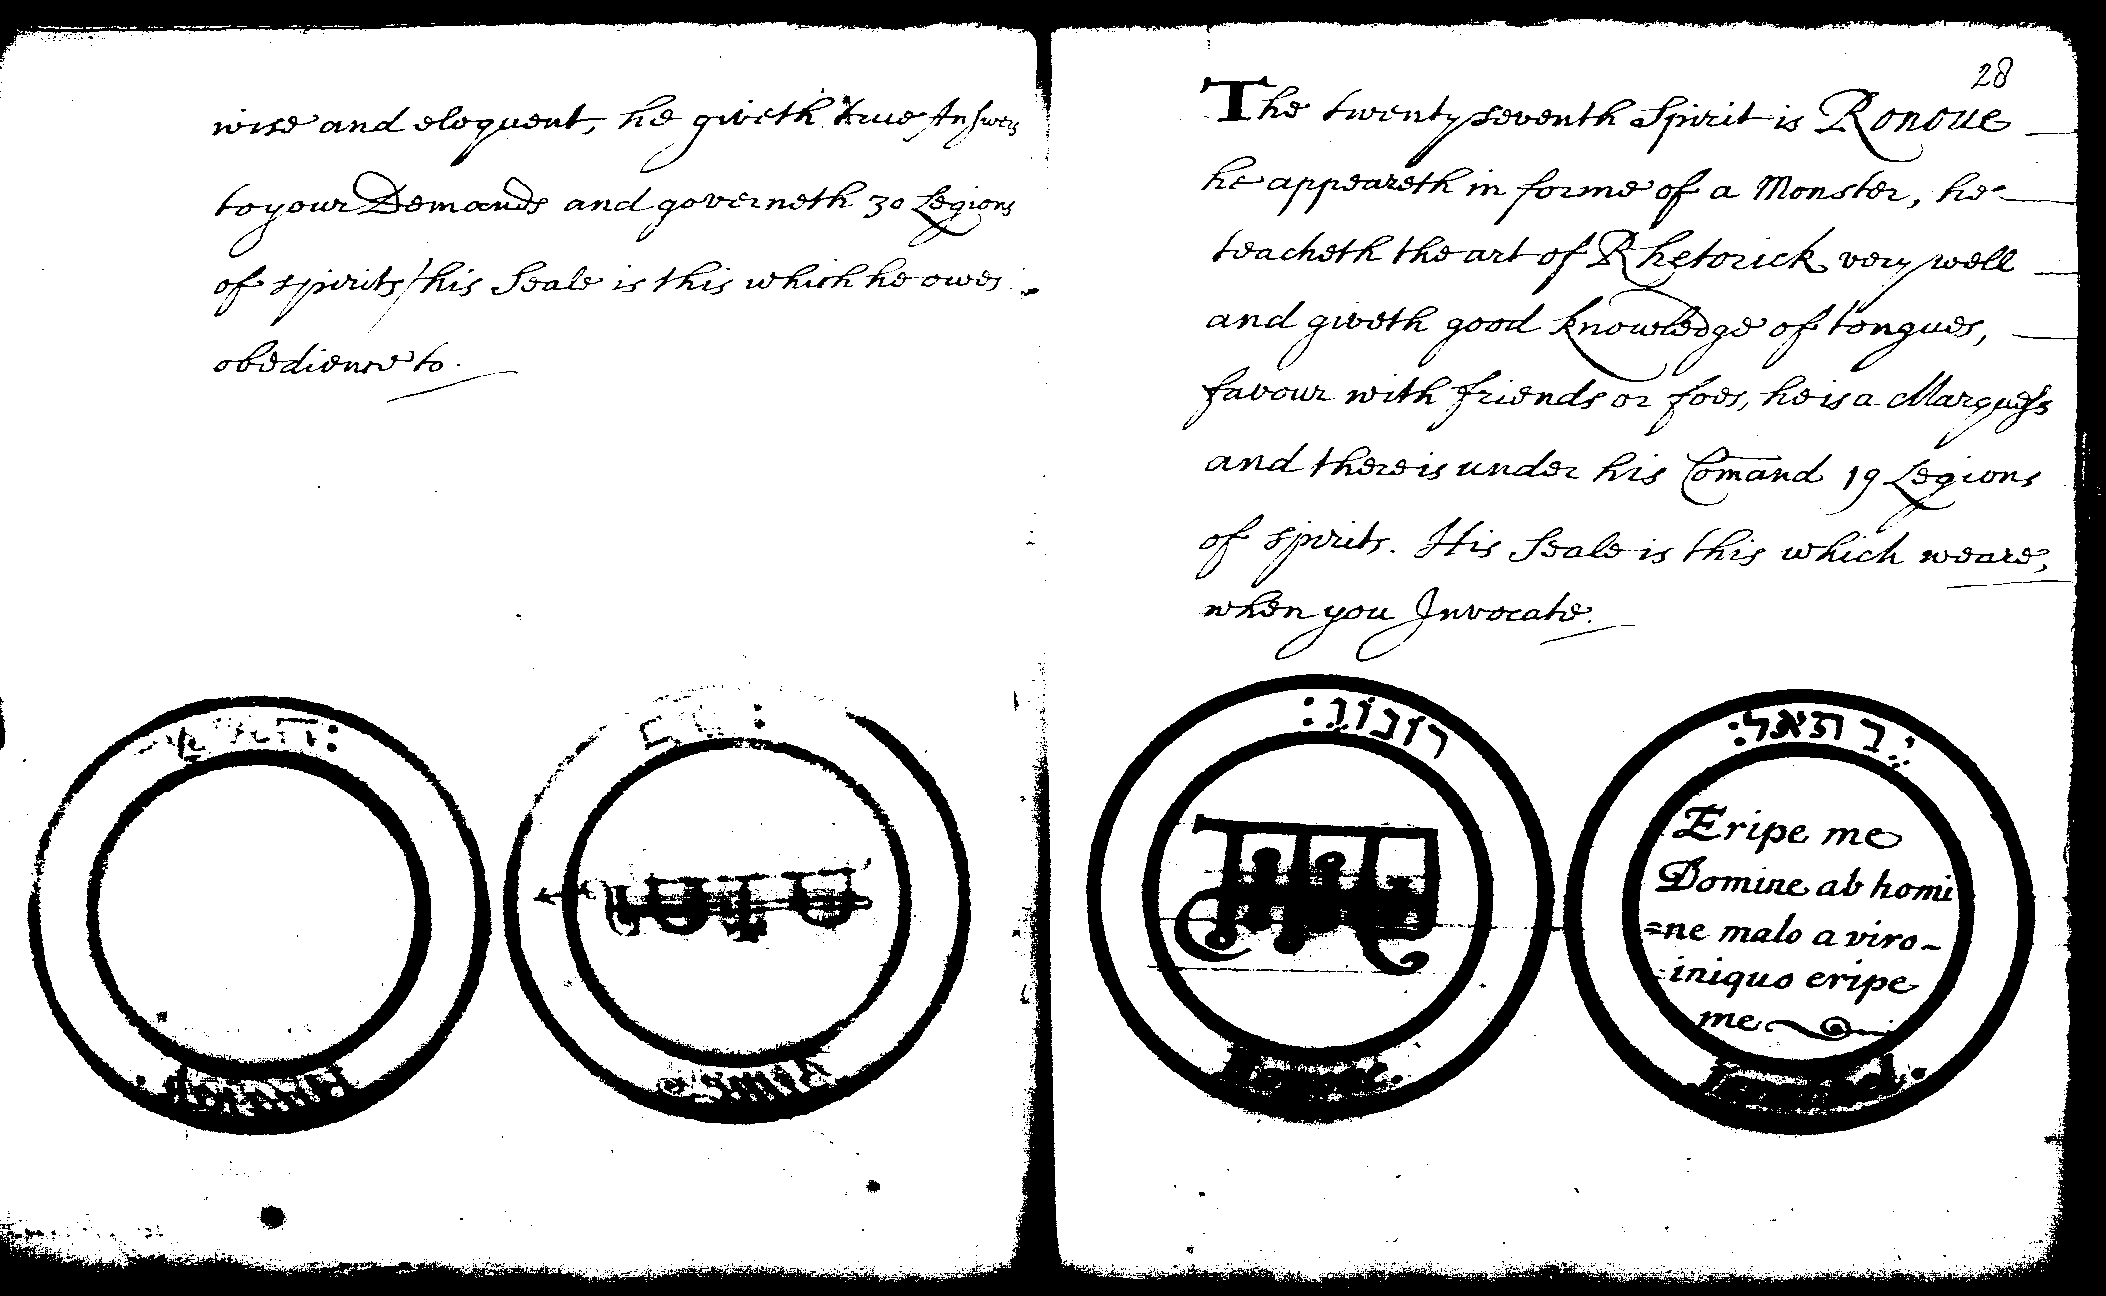 wise and eloquent, he giveth true Answers
to your Demands and governeth 30 Legions
of spirits, his Seale is this which he owes
obedience to.
28
The twenty seventh Spirit is Ronoue
he appeareth in forme of a Monster, he
teacheth the art of Rhetorick very well
and giveth good knowledge of tongues,
favour with friends or foes, he is a Marquess
and there is under his Comand 19 Legions
of spirits. His Seale is this which weare,
when you Invocate.
רונוב:
:יב תאל:
Eripe me
Domine ab homi
=ne malo a viro
iniquo eripe
me